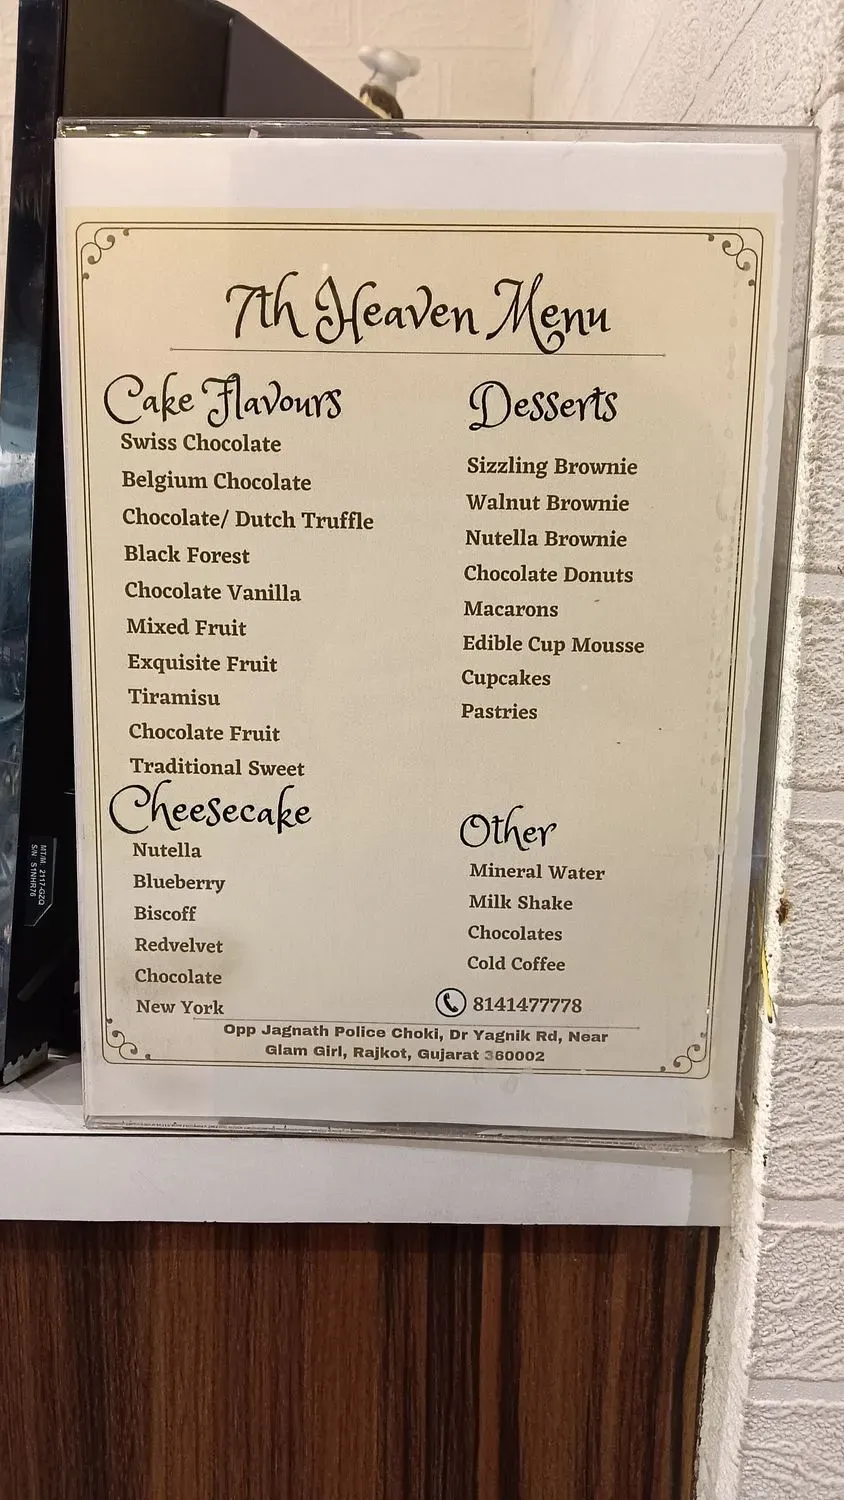 7th Heaven Menu
Cake Flavours
Swiss Chocolate
Belgium Chocolate
Chocolate/ Dutch Truffle
Black Forest
Chocolate Vanilla
Mixed Fruit
Exquisite Fruit
Tiramisu
Chocolate Fruit
Traditional Sweet
Cheesecake
Nutella
Blueberry
Biscoff
Redvelvet
Chocolate
New York
Desserts
Sizzling Brownie
Walnut Brownie
Nutella Brownie
Chocolate Donuts
Macarons
Edible Cup Mousse
Cupcakes
Pastries
Other
Mineral Water
Milk Shake
Chocolates
Cold Coffee
8141477778
Opp Jagnath Police Choki, Dr Yagnik Rd, Near
Glam Girl, Rajkot, Gujarat 360002
MT/M: 2117-GZQ
S/N: S1NHR76